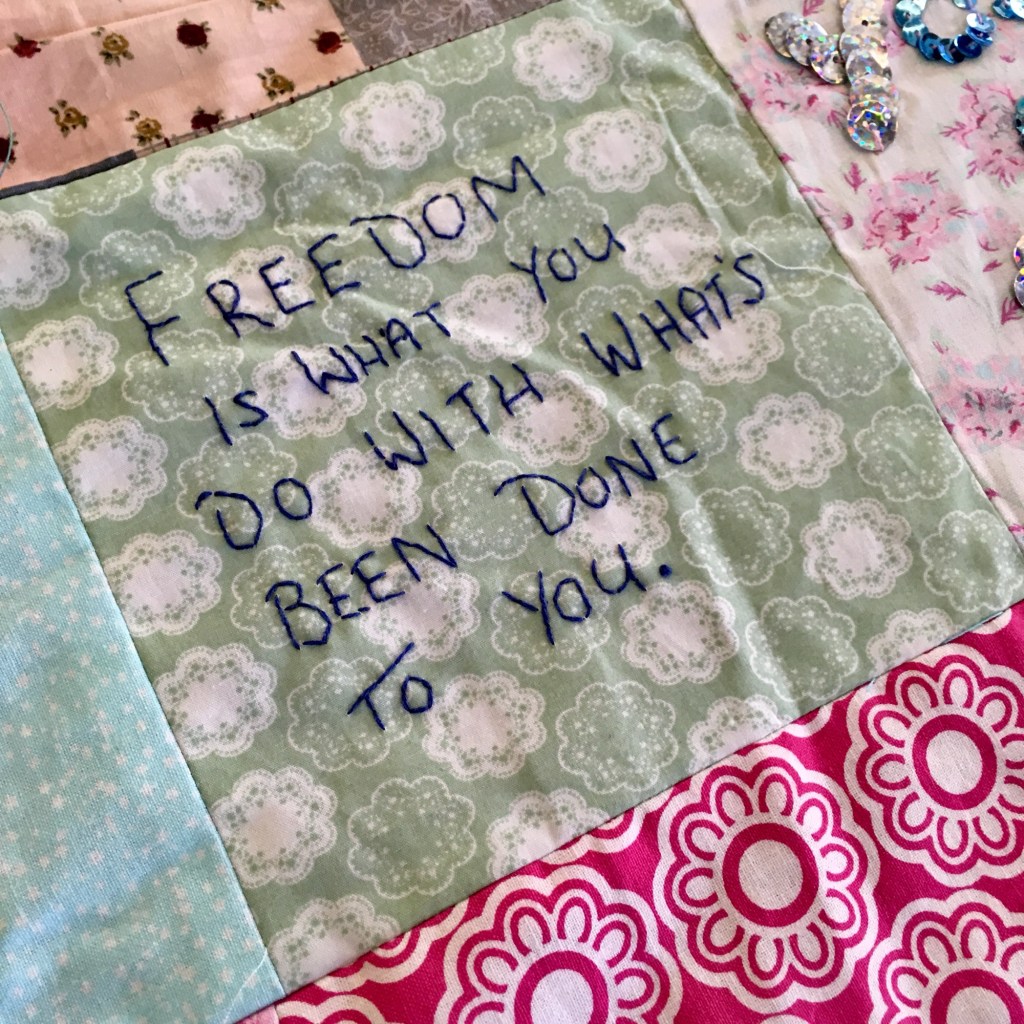 FREEDOM
IS WHAT YOU
DO WITH WHAT'S
BEEN DONE
TO YOU.